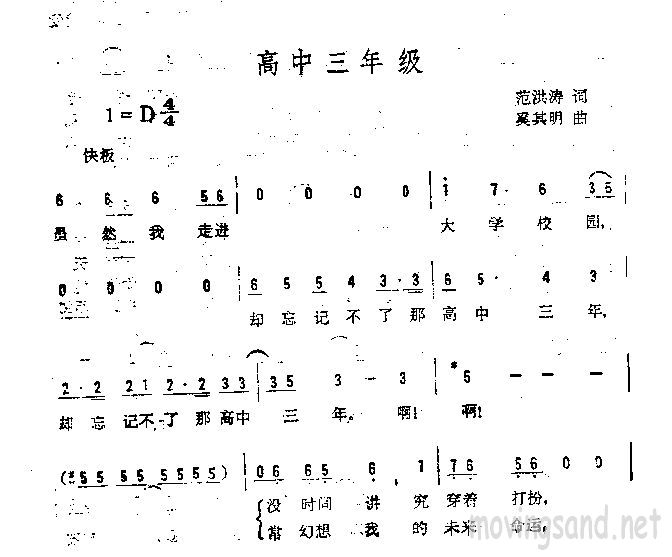 高中三年级
1=D 4/4
范洪涛 词
奚其明 曲
快板
6 6. 6 56 | 0 0 0 0 | i 7. 6 35
虽然我走进 大学校园,
0 0 0 0 | 6 5 5 4 3.3 | 6 5. 4 3
却忘记不了那高中三年,
2.2 21 2.2 33 | 35 3 - 3 | #5 - - -
却忘记不了那高中三年。啊! 啊!
(#55 55 5555) | 06 65 6. 1 | 76 56 0 0
没时间讲究穿着打扮,
常幻想我的未来命运,
movingsand.net